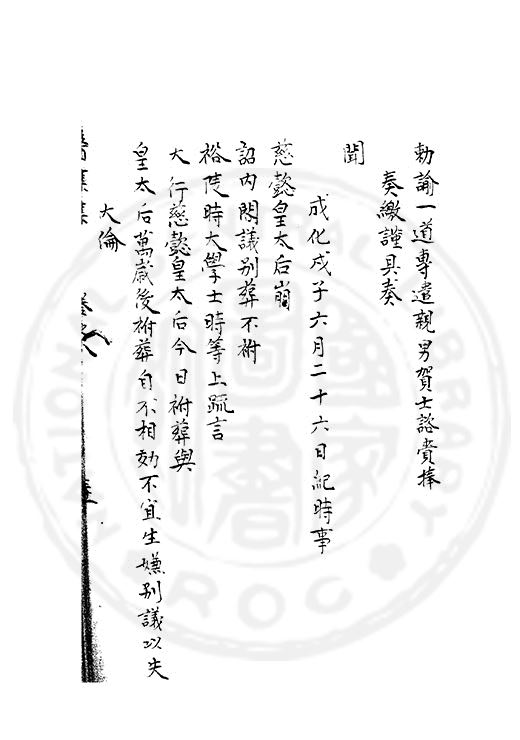 勅諭一道專遣親男賀士諮賫捧
奏繳謹具奏
聞
成化戊子六月二十六日紀時事
慈懿皇太后崩
詔内閣議别葬不祔
裕陵時大學士時等上疏言
大行慈懿皇太后今日祔葬與
皇太后萬歲後祔葬自不相妨不宜生嫌别議以失
大倫